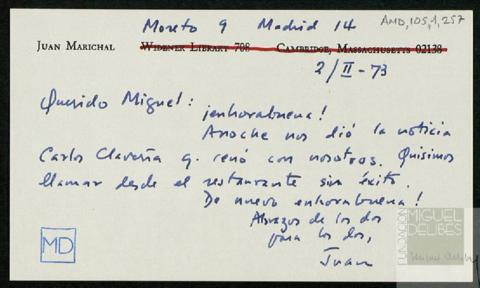 Moreto 9 Madrid 14
AMD,105,1,257
JUAN MARICHAL WIDENER LIBRARY 708 CAMBRIDGE, MASSACHUSETTS 02138
2/II-73
Querido Miguel: ¡enhorabuena!
Anoche nos dió la noticia
Carlos Clavería q. cenó con nosotros. Quisimos
llamar desde el restaurante sin éxito.
De nuevo enhorabuena!
Abrazos de los dos
para los dos,
Juan
MD
FUNDACIÓN
MIGUEL
DELIBES